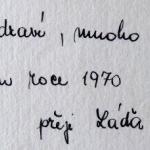 zdraví, mnoho
v roce 1970
přeji Láďa